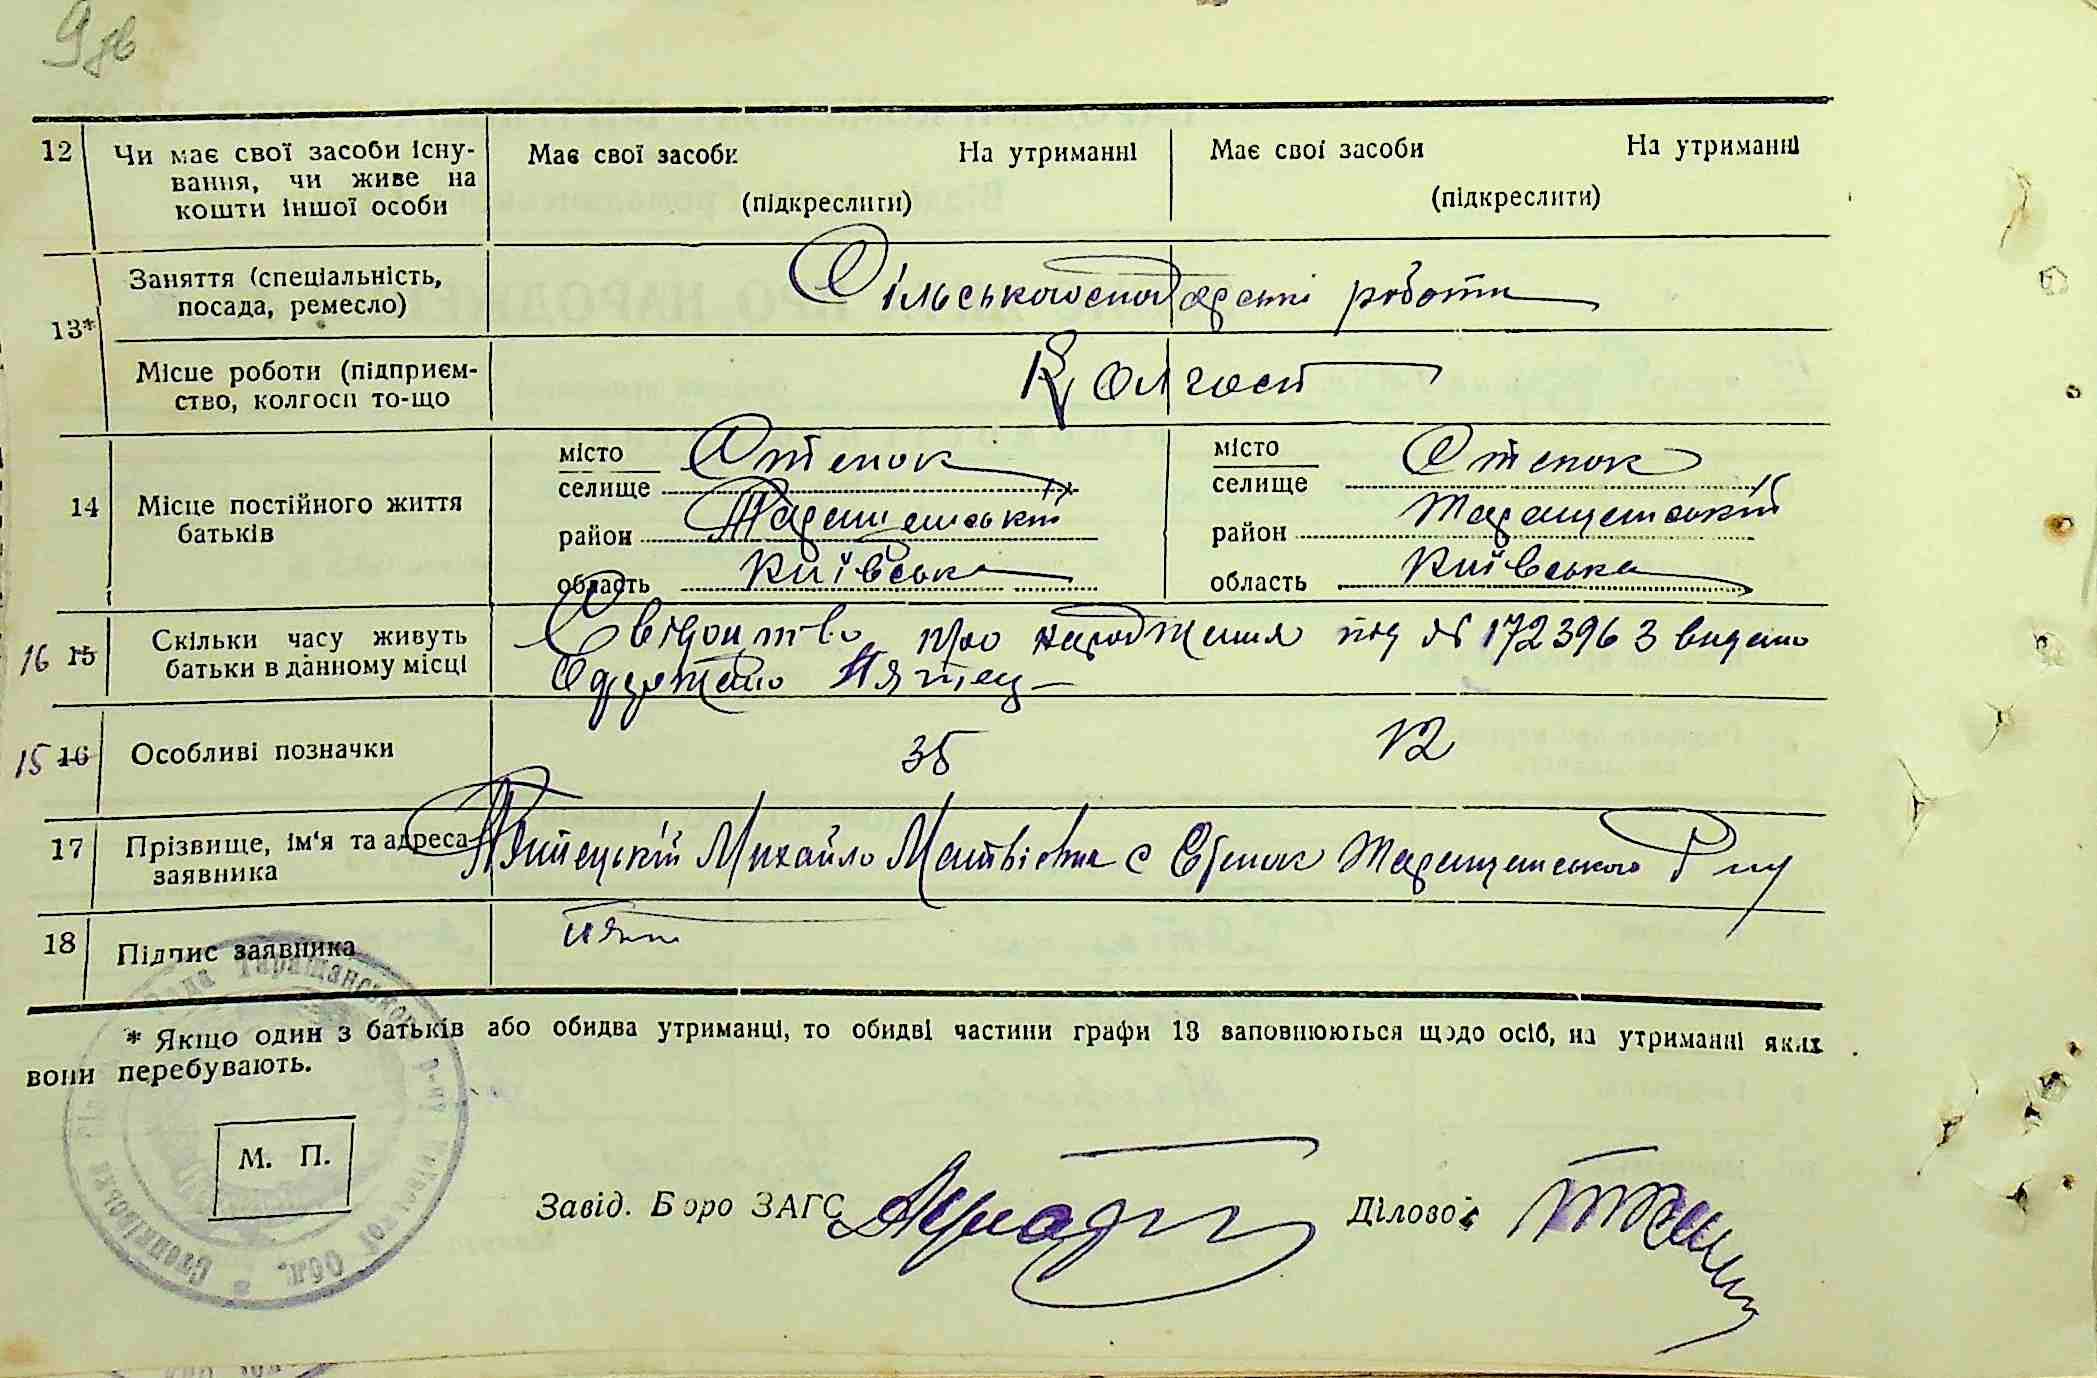 9 зв
12 Чи має свої засоби існу- Має свої засоби На утриманні Має свої засоби На утриманні
вання, чи живе на
кошти іншої особи (підкреслити) (підкреслити)
Заняття (спеціальність,
посада, ремесло) Сільськогосподарські роботи
13*
Місце роботи (підприєм-
ство, колгосп то-що Колгосп
місто Степок місто Степок
селище селище
14 Місце постійного життя
батьків
район Таращанський район Таращанський
область Київська область Київська
16 15 Скільки часу живуть Свідоцтво про народження під № 1723963 видано
батьки в данному місці Одержано Пятец
15 16 Особливі позначки 35 12
17 Прізвище, ім'я та адреса Михайло Матвієвич с Степок Таращанського Р ну
заявника
18 Підпис заявника Пят
* Якщо один з батьків або обидва утриманці, то обидві частини графи 13 заповнюються щодо осіб, на утриманні яких
вони перебувають.
М. П.
Завід. Бюро ЗАГС Діловод
Степківська Рада Таращанського р-ну Київської Обл.